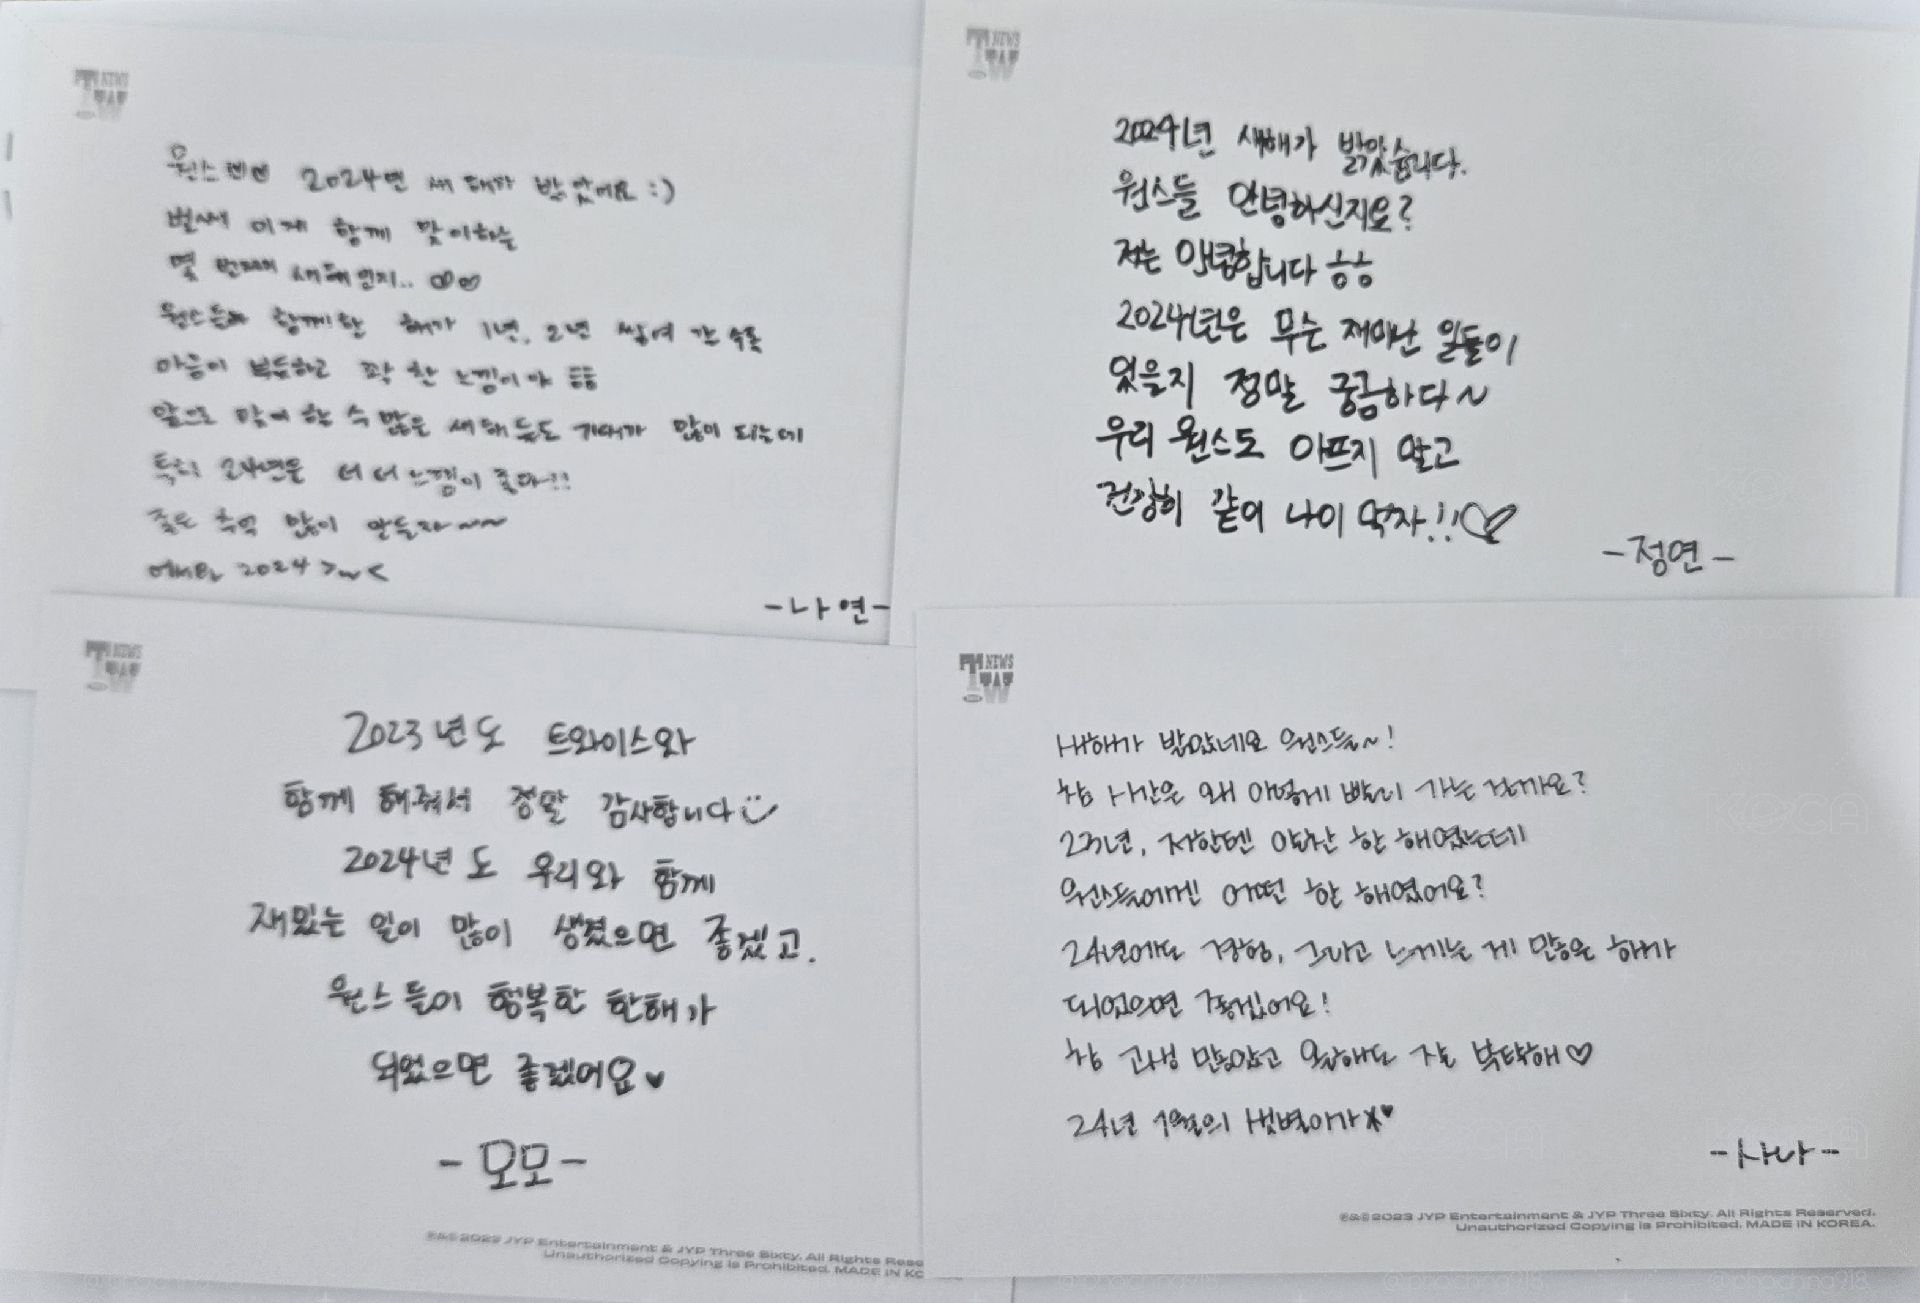 TW NEWS
원스랜드 2024년 새해가 밝았어요 :)
벌써 이게 함께 맞이하는
몇 번째의 새해인지..
원스들과 함께한 해가 1년, 2년 쌓여 갈 수록
마음이 뿌듯하고 꽉 찬 느낌이야 ㅎㅎ
앞으로 맞이 할 수 많은 새해들도 기대가 많이 되는데
특히 24년은 더 더 느낌이 좋다!!
좋은 추억 많이 만들자~~
2024 >~<
-나연-
TW NEWS
2024년 새해가 밝았습니다.
원스들 안녕하신지요?
저는 안녕합니다 ㅎㅎ
2024년은 무슨 재미난 일들이
있을지 정말 궁금하다~
우리 원스도 아프지 말고
건강히 같이 나이 먹자!!♡
-정연-
TW NEWS
2023년도 트와이스와
함께 해줘서 정말 감사합니다
2024년도 우리와 함께
재밌는 일이 많이 생겼으면 좋겠고.
원스들이 행복한 한해가
되었으면 좋겠어요♥
-모모-
©&℗2023 JYP Entertainment & JYP Three Sixty. All Rights Rese
Unauthorized Copying is Prohibited. MADE IN KO
TW NEWS
새해가 밝았네요 원스들~!
참 시간은 왜 이렇게 빨리 가는 걸까요?
23년, 저한텐 알찬 한 해였는데
원스들에겐 어떤 한 해였어요?
24년에도 경험, 그리고 느끼는 게 많은 해가
되었으면 좋겠어요!
참 고생 많았고 올해도 잘 부탁해♡
24년 1월의 햇병아가♥
-사나-
©&℗2023 JYP Entertainment & JYP Three Sixty. All Rights Reserved.
Unauthorized Copying is Prohibited. MADE IN KOREA.